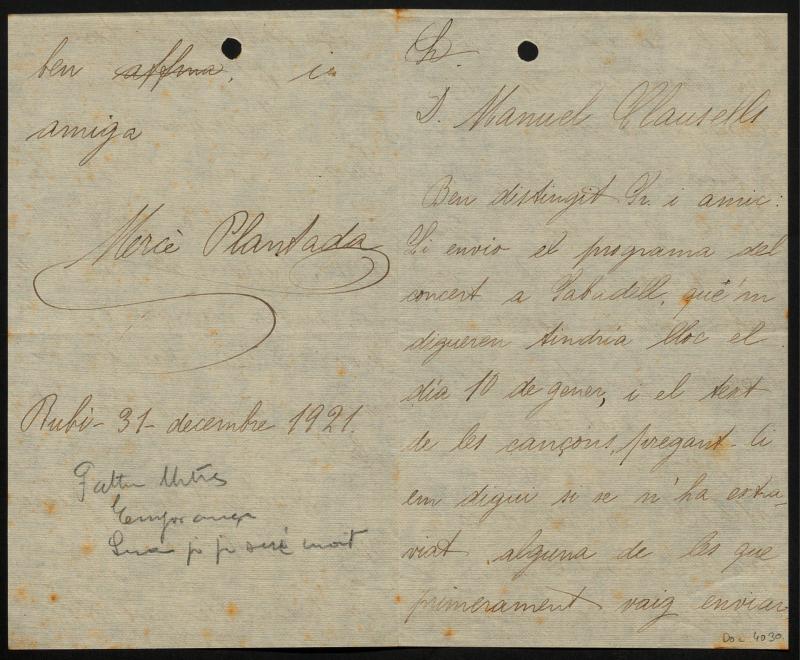 Sr.
D. Manuel Clausells
Ben distingit Sr. i amic:
Li envio el programa del
concert a Sabadell, que'm
digueren tindría lloc el
día 10 de gener, i el text
de les cançons, pregant-li
em digui si se n'ha extra-
viat alguna de les que
primerament vaig enviar
Doc 4030
ben affma, i
amiga
Mercè Plantada
Rubí - 31 - decembre 1921.
Falten
Temprança
jo ja seré mort